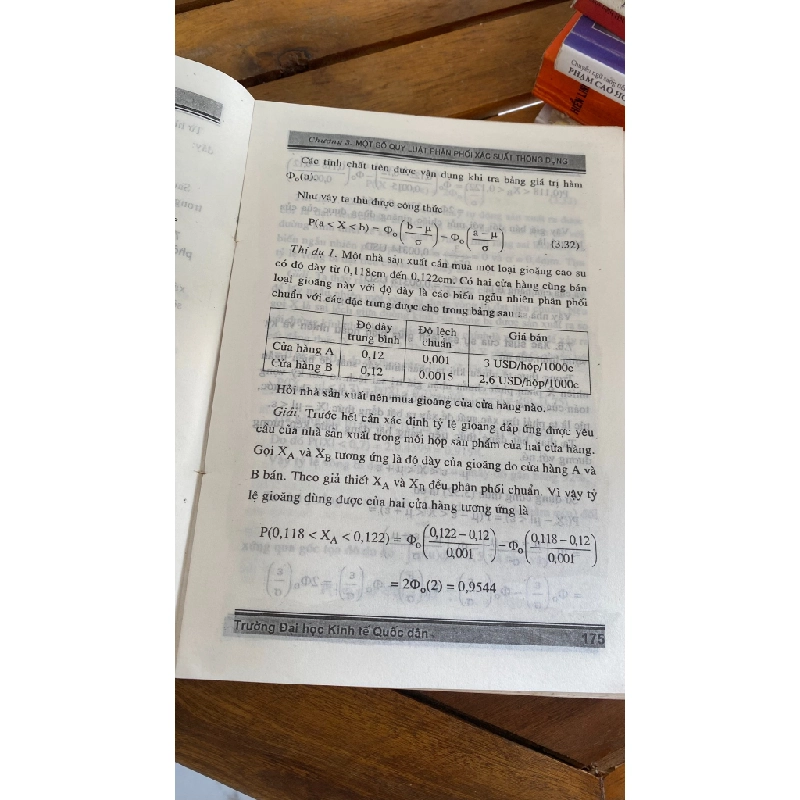 Chuyên ngữ
PHẠM CAO
Chương 3. MỘT SỐ QUY LUẬT PHÂN PHỐI XÁC SUẤT THÔNG DỤNG
Các tính chất trên được vận dụng khi tra bảng giá trị hàm
Φ₀(u).
Như vậy ta thu được công thức
P(a < X < b) = Φ₀((b − μ)/σ) − Φ₀((a − μ)/σ) (3.32)
Thí dụ 1. Một nhà sản xuất cần mua một loại gioăng cao su
có độ dày từ 0,118cm đến 0,122cm. Có hai cửa hàng cùng bán
loại gioăng này với độ dày là các biến ngẫu nhiên phân phối
chuẩn với các đặc trưng được cho trong bảng sau :
Độ dày trung bình Độ lệch chuẩn Giá bán
Cửa hàng A 0,12 0,001 3 USD/hộp/1000c
Cửa hàng B 0,12 0,0015 2,6 USD/hộp/1000c
Hỏi nhà sản xuất nên mua gioăng của cửa hàng nào.
Giải. Trước hết cần xác định tỷ lệ gioăng đáp ứng được yêu
cầu của nhà sản xuất trong mỗi hộp sản phẩm của hai cửa hàng.
Gọi X_A và X_B tương ứng là độ dày của gioăng do cửa hàng A và
B bán. Theo giả thiết X_A và X_B đều phân phối chuẩn. Vì vậy tỷ
lệ gioăng dùng được của hai cửa hàng tương ứng là
P(0,118 < X_A < 0,122) = Φ₀((0,122 − 0,12)/0,001) − Φ₀((0,118 − 0,12)/0,001)
= 2Φ₀(2) = 0,9544
Trường Đại học Kinh tế Quốc dân
175